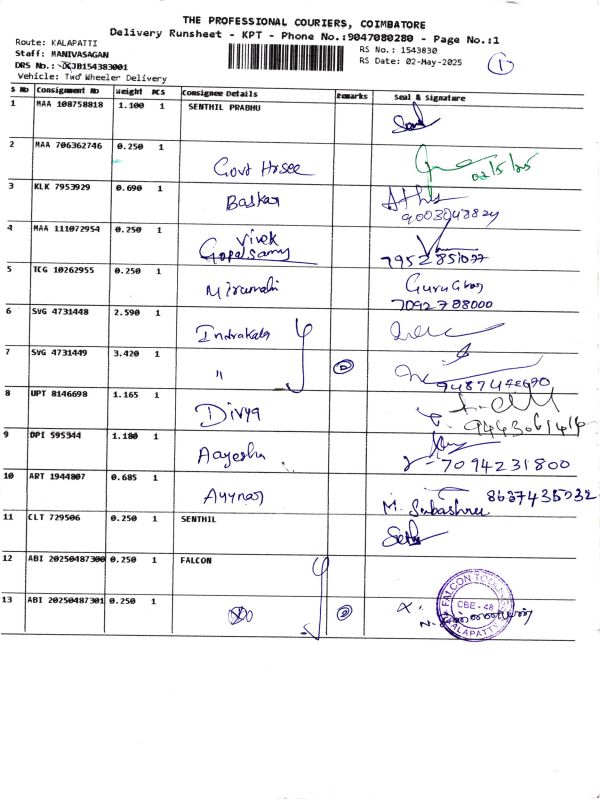 THE PROFESSIONAL COURIERS, COIMBATORE
Delivery Runsheet - KPT - Phone No.:9047080280 - Page No.:1
Route: KALAPATTI
RS No.: 1543830
Staff: MANIVASAGAN
RS Date: 02-May-2025
1
DRS No.: JB154383001
Vehicle: Two Wheeler Delivery
S No Consignment No Weight PCS Consignee Details Remarks Seal & Signature
1 MAA 108758818 1.100 1 SENTHIL PRABHU
2 MAA 706362746 0.250 1 Govt Hrsec 02/5/25
3 KLK 7953929 0.690 1 Baskar
9003048824
4 MAA 111072954 0.250 1 Vivek
Gopalsamy
5 TCG 10262955 0.250 1 Guru
7092788000
6 SVG 4731448 2.590 1 Indrakala
7 SVG 4731449 3.420 1 "
8 UPT 8146698 1.165 1 Divya
9 DPI 595344 1.180 1 Aayesha 7094231800
10 ART 1944807 0.685 1 Ayynar M. Subashree
11 CLT 729506 0.250 1 SENTHIL
12 ABI 20250487300 0.250 1 FALCON
13 ABI 20250487301 0.250 1
FALCON
CBE - 48
KALAPATTY